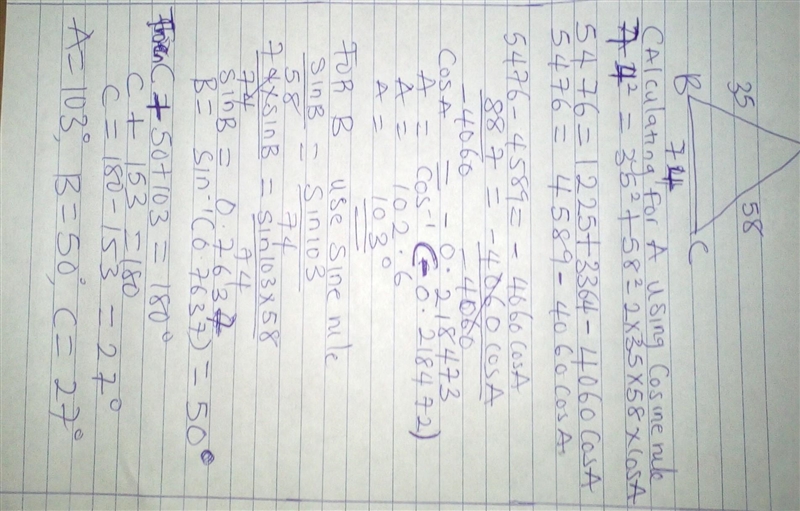 35
58
B
74
C
CAlculating for A using Cosine rule
74² = 35² + 58² - 2x35x58xCosA
5476 = 1225 + 3364 - 4060 CosA
5476 = 4589 - 4060 CosA
5476 - 4589 = - 4060 cosA
887 = -4060 cosA
-4060 -4060
CosA = -0.218473
A = cos⁻¹(-0.218472)
A = 102.6
A = 103°
FOR B use Sine rule
SinB = Sin103
58 74
74xSinB = Sin103x58
74 74
SinB = 0.7637
B = Sin⁻¹(0.7637) = 50°
C + 50 + 103 = 180°
C + 153 = 180
C = 180 - 153 = 27°
A = 103°, B = 50°, C = 27°